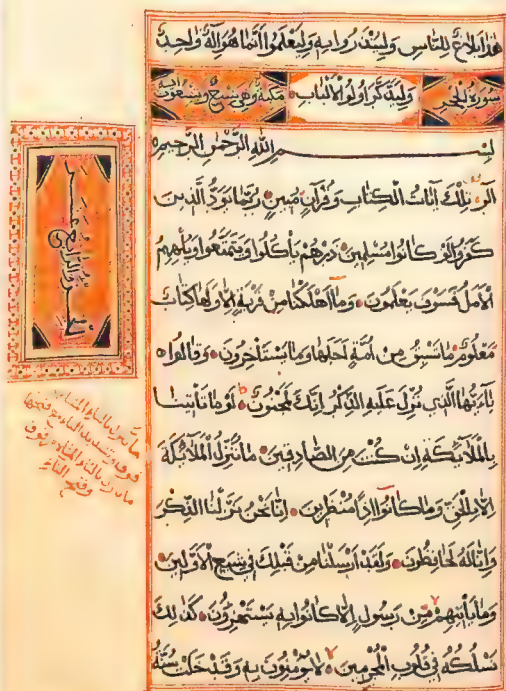 هذا بلاغ للناس ولينذروا به وليعلموا أنما هو إله واحد
وليذكر أولوا الألباب
سورة الحجر
مكية وهي تسع وتسعون آية
بسم الله الرحمن الرحيم
الر تلك آيات الكتاب وقرآن مبين ربما يود الذين
كفروا لو كانوا مسلمين ذرهم يأكلوا ويتمتعوا ويلههم
الأمل فسوف يعلمون وما أهلكنا من قرية إلا ولها كتاب
معلوم ما تسبق من أمة أجلها وما يستأخرون وقالوا
يا أيها الذي نزل عليه الذكر إنك لمجنون لو ما تأتينا
بالملائكة إن كنت من الصادقين ما ننزل الملائكة
إلا بالحق وما كانوا إذا منظرين إنا نحن نزلنا الذكر
وإنا له لحافظون ولقد أرسلنا من قبلك في شيع الأولين
وما يأتيهم من رسول إلا كانوا به يستهزؤن كذلك
نسلكه في قلوب المجرمين لا يؤمنون به وقد خلت سنة
الجزء الرابع عشر